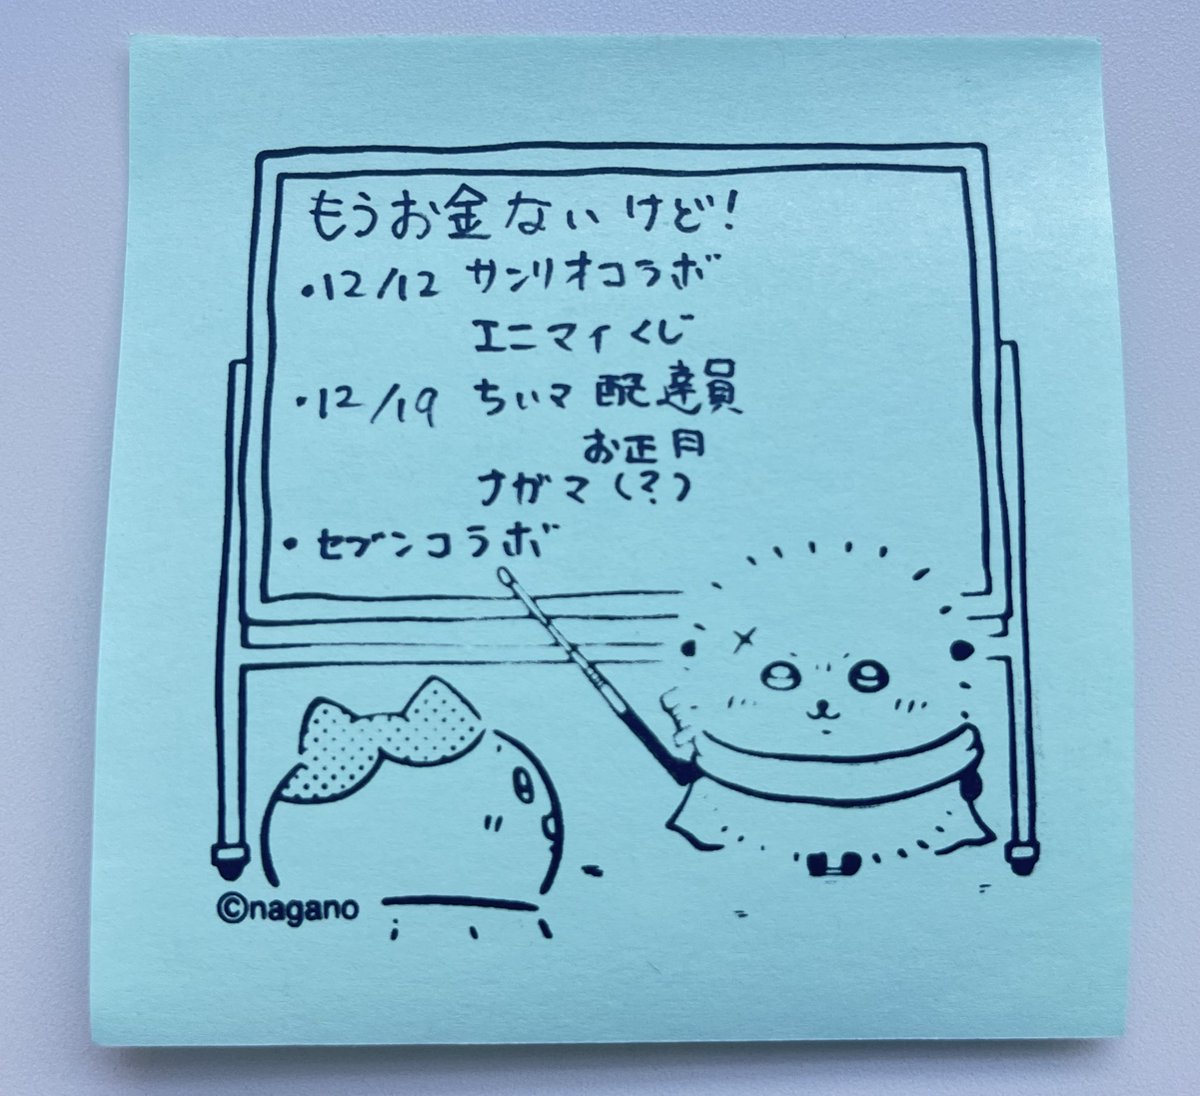 もうお金ないけど!
・12/12 サンリオコラボ
エニマイくじ
・12/19 ちいマ 配達員
お正月
ナガマ(?)
・セブンコラボ
©nagano